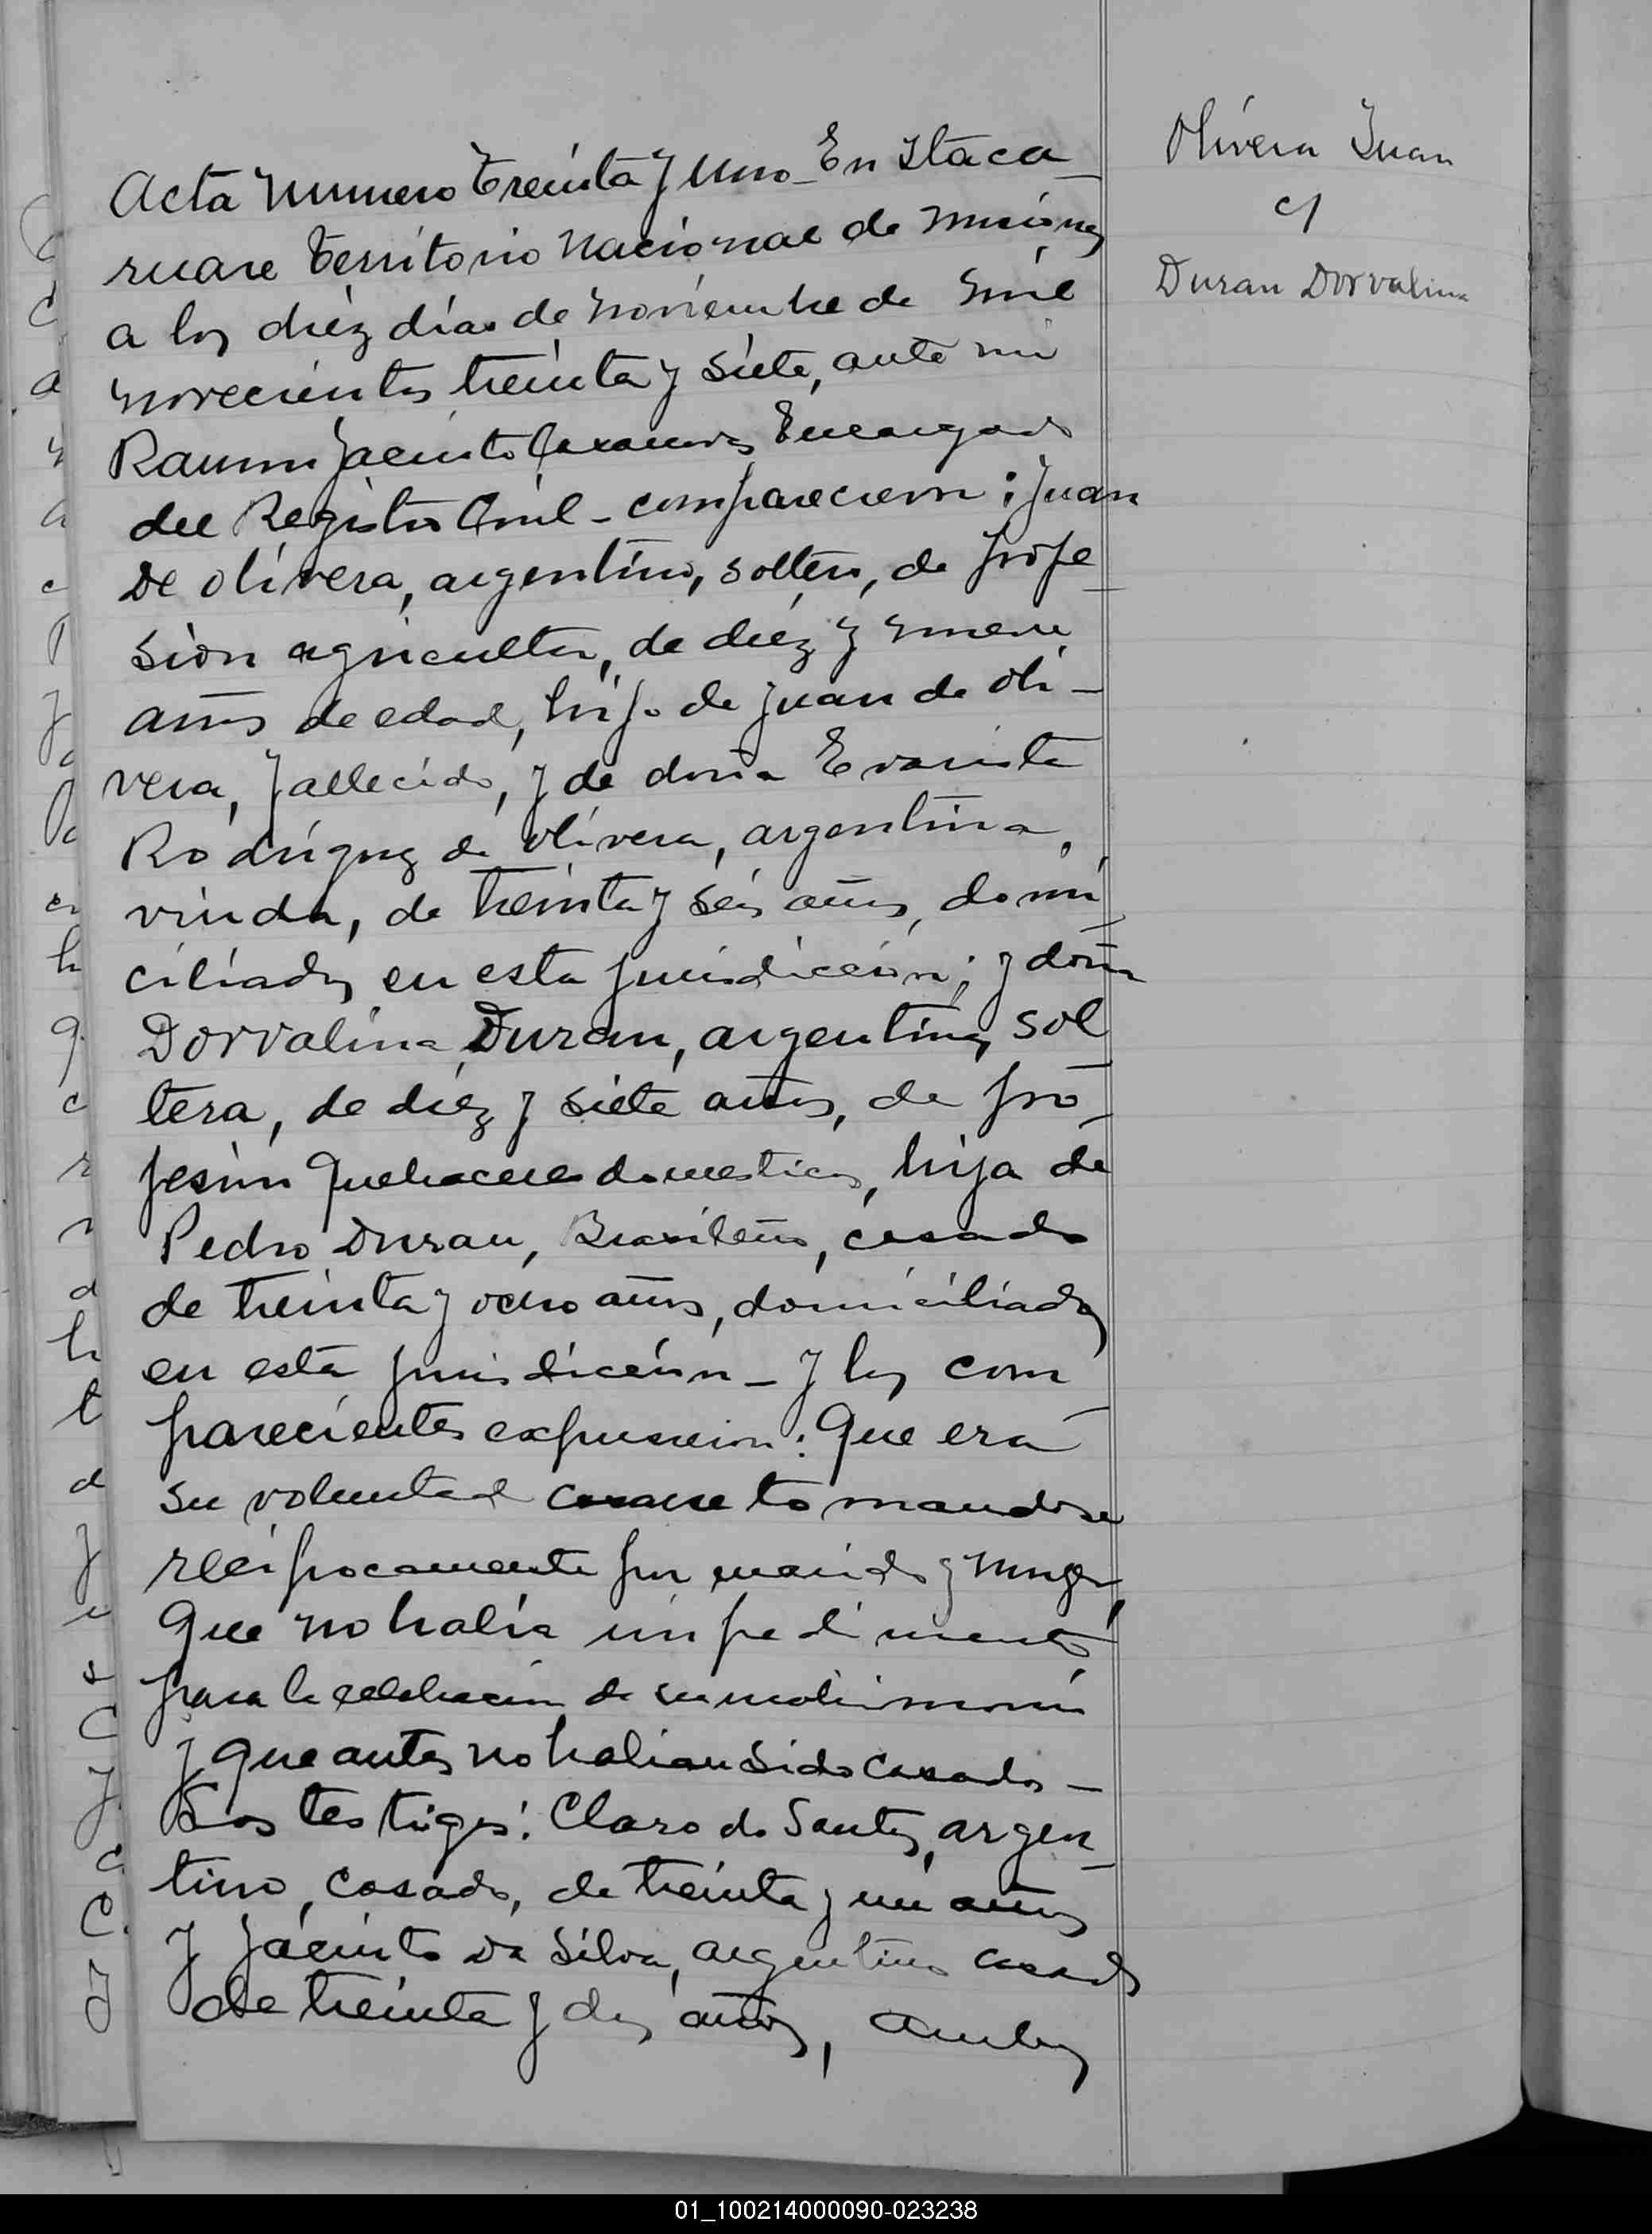 Acta Numero Treinta y Uno_ En Itaca_
ruare Territorio Nacional de Misiones
a los diéz días de Noviembre de mil
novecientos treinta y siete, ante mi
Ramon Jacinto Encargado
del Registro Civil - comparecieron: Juan
De Olivera, argentino, soltero, de profe_
sion agricultor, de diéz y nueve
años de edad, hijo de Juan de Oli-
vera, fallecido, y de doña Evarista
Rodríguez de Olivera, argentina,
viuda, de treinta y seis años, domi_
ciliados en esta jurisdiccion; y doña
Dorvalina Duran, argentina, sol
tera, de diéz y siete años, de pro_
fesion quehaceres domesticos, hija de
Pedro Duran, Brasileño, casado
de treinta y ocho años, domiciliados
en esta jurisdiccion_ y los com_
parecientes expusieron: Que era
su voluntad casarse tomandose
reciprocamente por marido y muger,
Que no habia impedimento
para la celebracion de su matrimonio
y que antes no habian sido casados_
Los testigos: Claro do Santos, argen_
tino, casado, de treinta y un años
y Jacinto Da Silva, argentino casado
de treinta y dos años, ambos
Olivera Juan
c/
Duran Dorvalina
01_100214000090-023238